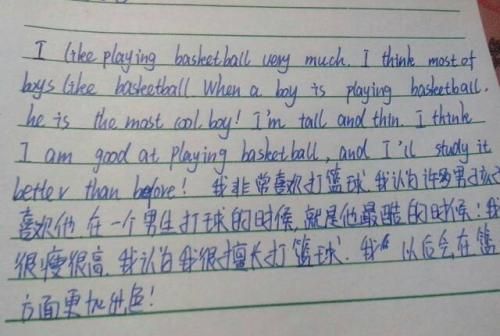 I like playing basketball very much. I think most of
boys like basketball. When a boy is playing basketball.
he is the most cool boy! I'm tall and thin. I think
I am good at playing basketball, and I'll study it
better than before! 我非常喜欢打篮球.我认为许多男孩
喜欢他.在一个男生打球的时候,就是他最酷的时候!我
很瘦很高.我认为我很擅长打篮球.我 以后会在篮
方面更加出色!